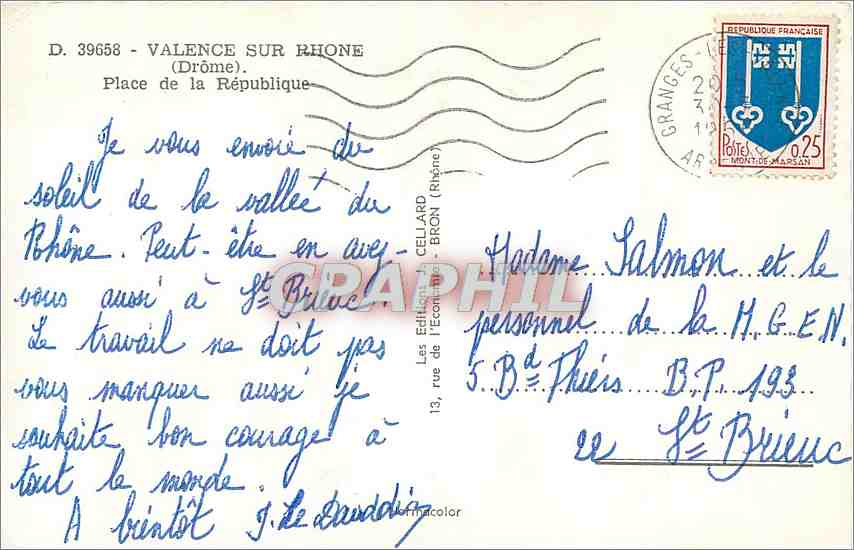 D. 39658 - VALENCE SUR RHONE
(Drôme).
Place de la République
Je vous envoie du
soleil de la vallée du
Rhône. Peut-être en avez-
vous aussi à St Brieuc?
Le travail ne doit pas
vous manquer aussi je
souhaite bon courage à
tout le monde.
A bientôt J. Le
Les Editions J. CELLARD
13, rue de l'Economie - BRON (Rhône)
CARAPHIL
GRANGES-LES
REPUBLIQUE FRANÇAISE
POSTES 0,25
MONT-DE-MARSAN
Madame Salmon et le
personnel de la M.G.E.N.
5 Bd Thiers B.P. 193
22 St Brieuc